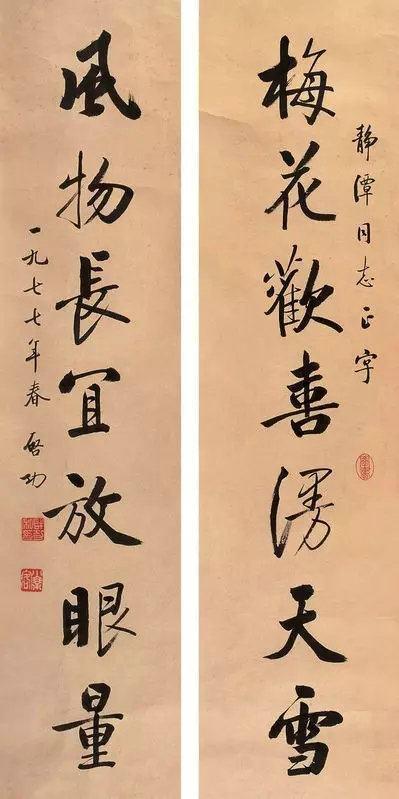 靜潭同志正字
梅花歡喜漫天雪
風物長宜放眼量
一九七七年春 啓功